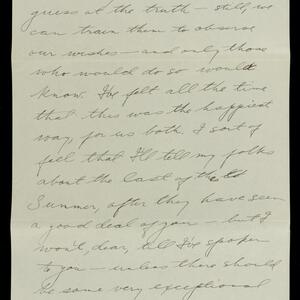 guess at the truth — still, we
can train them to observe
our wishes — and only those
who would do so would
know. I've felt all the time
that this was the happiest
way, for us both. I sort of
feel that I'll tell my folks
about the last of the
Summer, after they have seen
a good deal of you — but I
won't, dear, till I've spoken
to you — unless there should
be some very exceptional